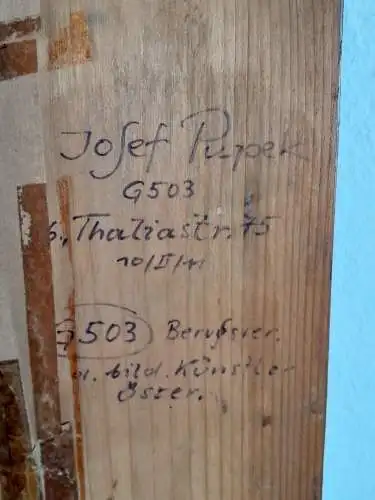 Josef Pupek
G503
6., Thaliastr. 75
10/II/11
G503 Berufsver.
d. bild. Künstler
Öster.